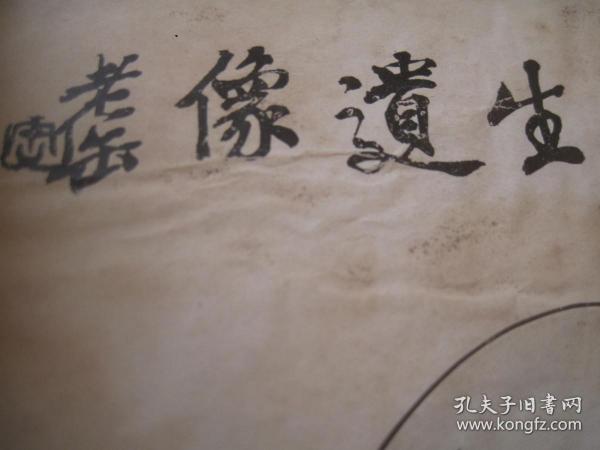 生遺像
老缶
孔夫子旧書网
www.kongfz.com